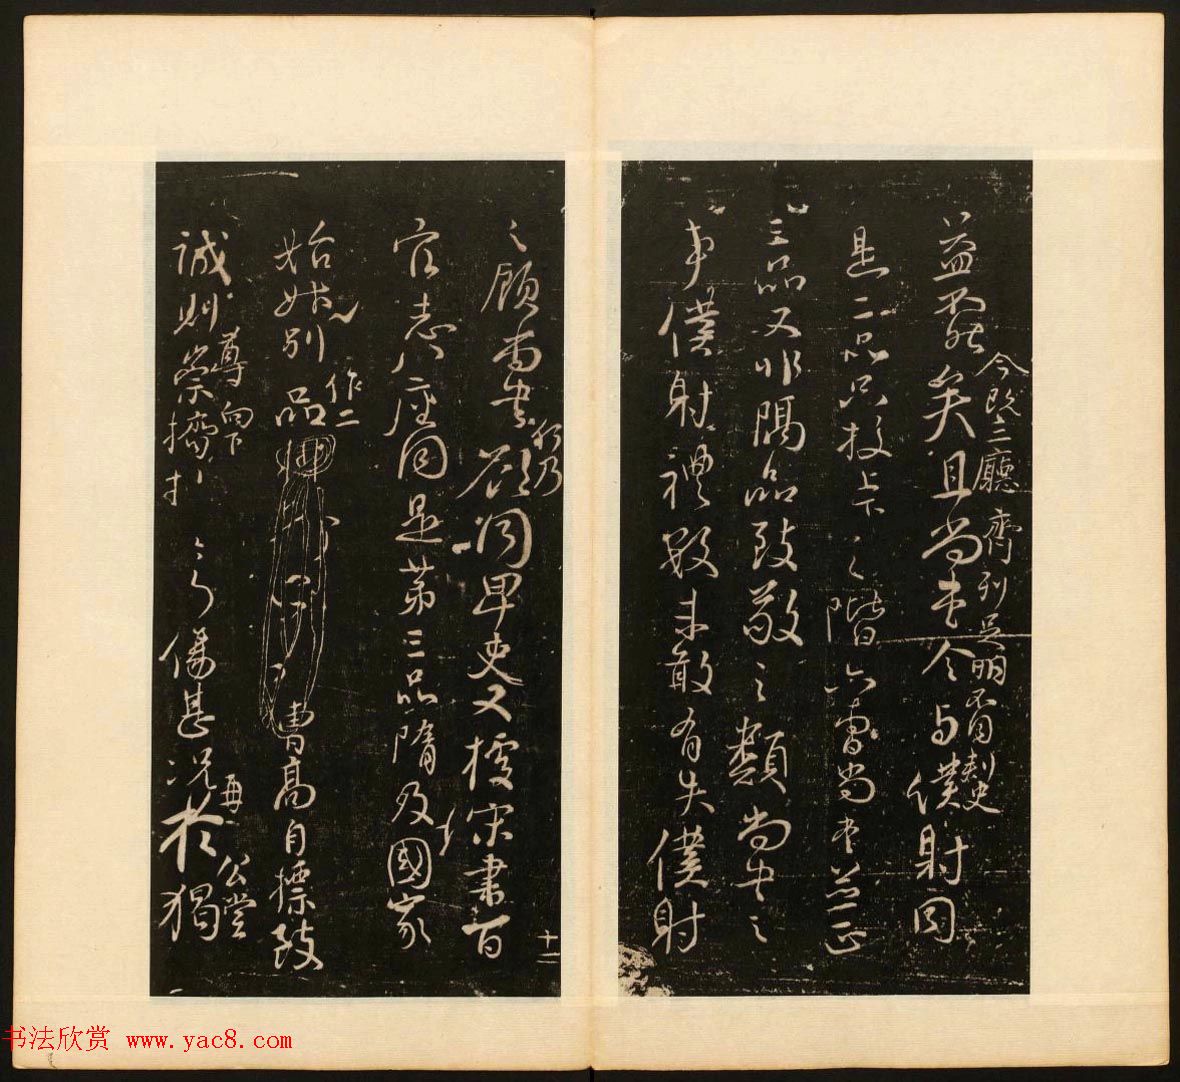 益不然矣且尚書令與僕射同
今既三廳齊列足明不同刺史
是二品只校上下之階六曹尚書並正
三品又非隔品致敬之類尚書之
事僕射禮數未敢有失僕射
之顧尚書欲同卑吏又據宋書百
何乃
十二
官志八座同是第三品隋及國家
始升別品曹高自標致
作二
誠則崇擠傷甚況於獨
尊向下
再公堂
书法欣赏 www.yac8.com